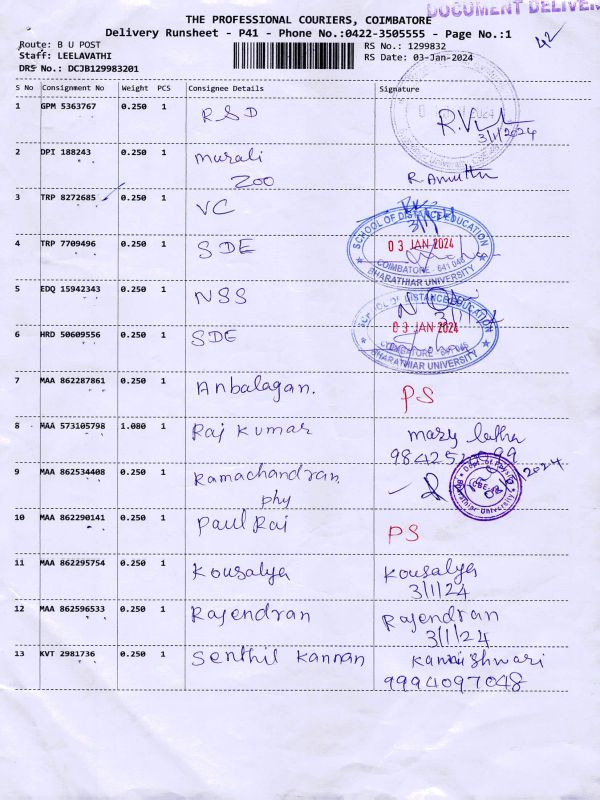 DOCUMENT DELIVER
THE PROFESSIONAL COURIERS, COIMBATORE
Delivery Runsheet - P41 - Phone No.:0422-3505555 - Page No.:1
42
Route: B U POST
RS No.: 1299832
Staff: LEELAVATHI
RS Date: 03-Jan-2024
DRS No.: DCJB129983201
S No Consignment No Weight PCS Consignee Details Signature
1 GPM 5363767 0.250 1 RSD
3/1/2024
2 DPI 188243 0.250 1 Murali R Amutha
Zoo
3 TRP 8272685 0.250 1 VC
SCHOOL OF DISTANCE EDUCATION
03 JAN 2024
COIMBATORE - 641 046
BHARATHIAR UNIVERSITY
4 TRP 7709496 0.250 1 SDE
5 EDQ 15942343 0.250 1 NSS
SCHOOL OF DISTANCE EDUCATION
03 JAN 2024
COIMBATORE - 641 046
BHARATHIAR UNIVERSITY
6 HRD 50609556 0.250 1 SDE
7 MAA 862287861 0.250 1 Anbalagan. PS
8 MAA 573105798 1.080 1 Raj Kumar Mary latha
9 MAA 862534408 0.250 1 Ramachandran
phy
Bharathiar University
10 MAA 862290141 0.250 1 Paul Raj PS
11 MAA 862295754 0.250 1 Kousalya Kousalya
3/1/24
12 MAA 862596533 0.250 1 Rajendran Rajendran
3/1/24
13 KVT 2981736 0.250 1 Senthil Kannan
9994097048